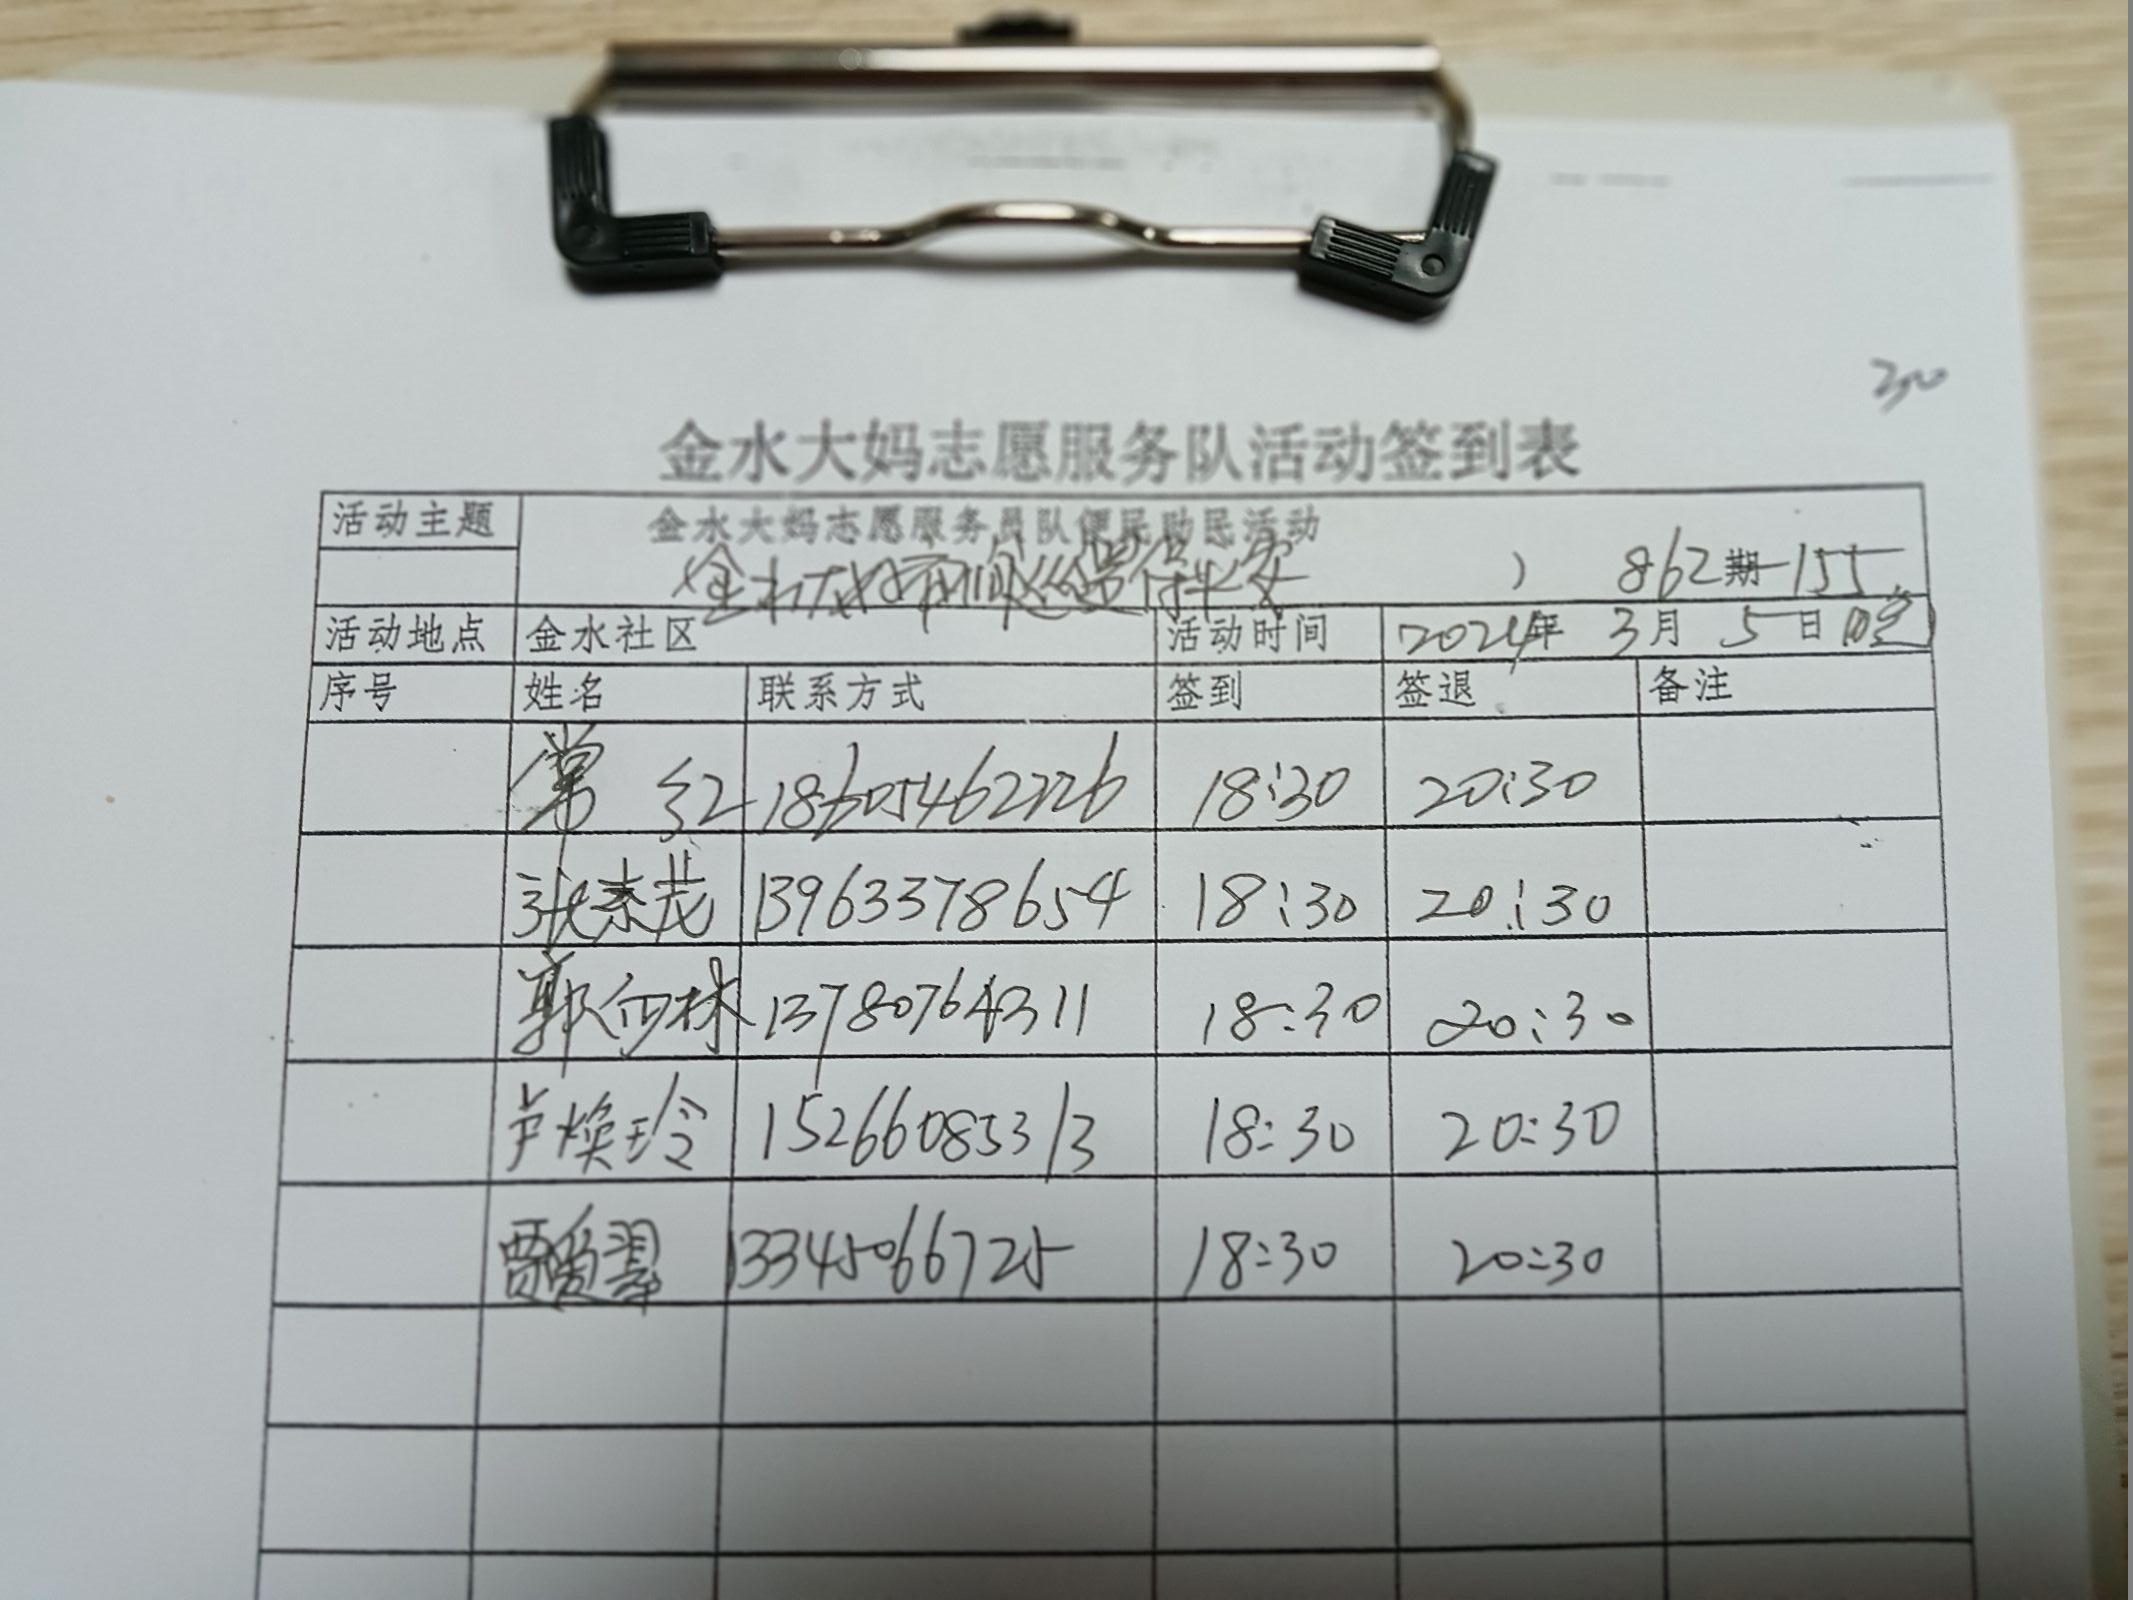 金水大妈志愿服务队活动签到表
活动主题 金水大妈志愿服务员队便民助民活动
(金水大妈夜间巡逻保平安) 862期-155
活动地点 金水社区 活动时间 2024年 3月 5日
序号 姓名 联系方式 签到 签退 备注
常红 18605462226 18:30 20:30
张素茂 13963378654 18:30 20:30
郭向林 13780764311 18:30 20:30
芦焕玲 15266085313 18:30 20:30
贾爱翠 13345066725 18:30 20:30